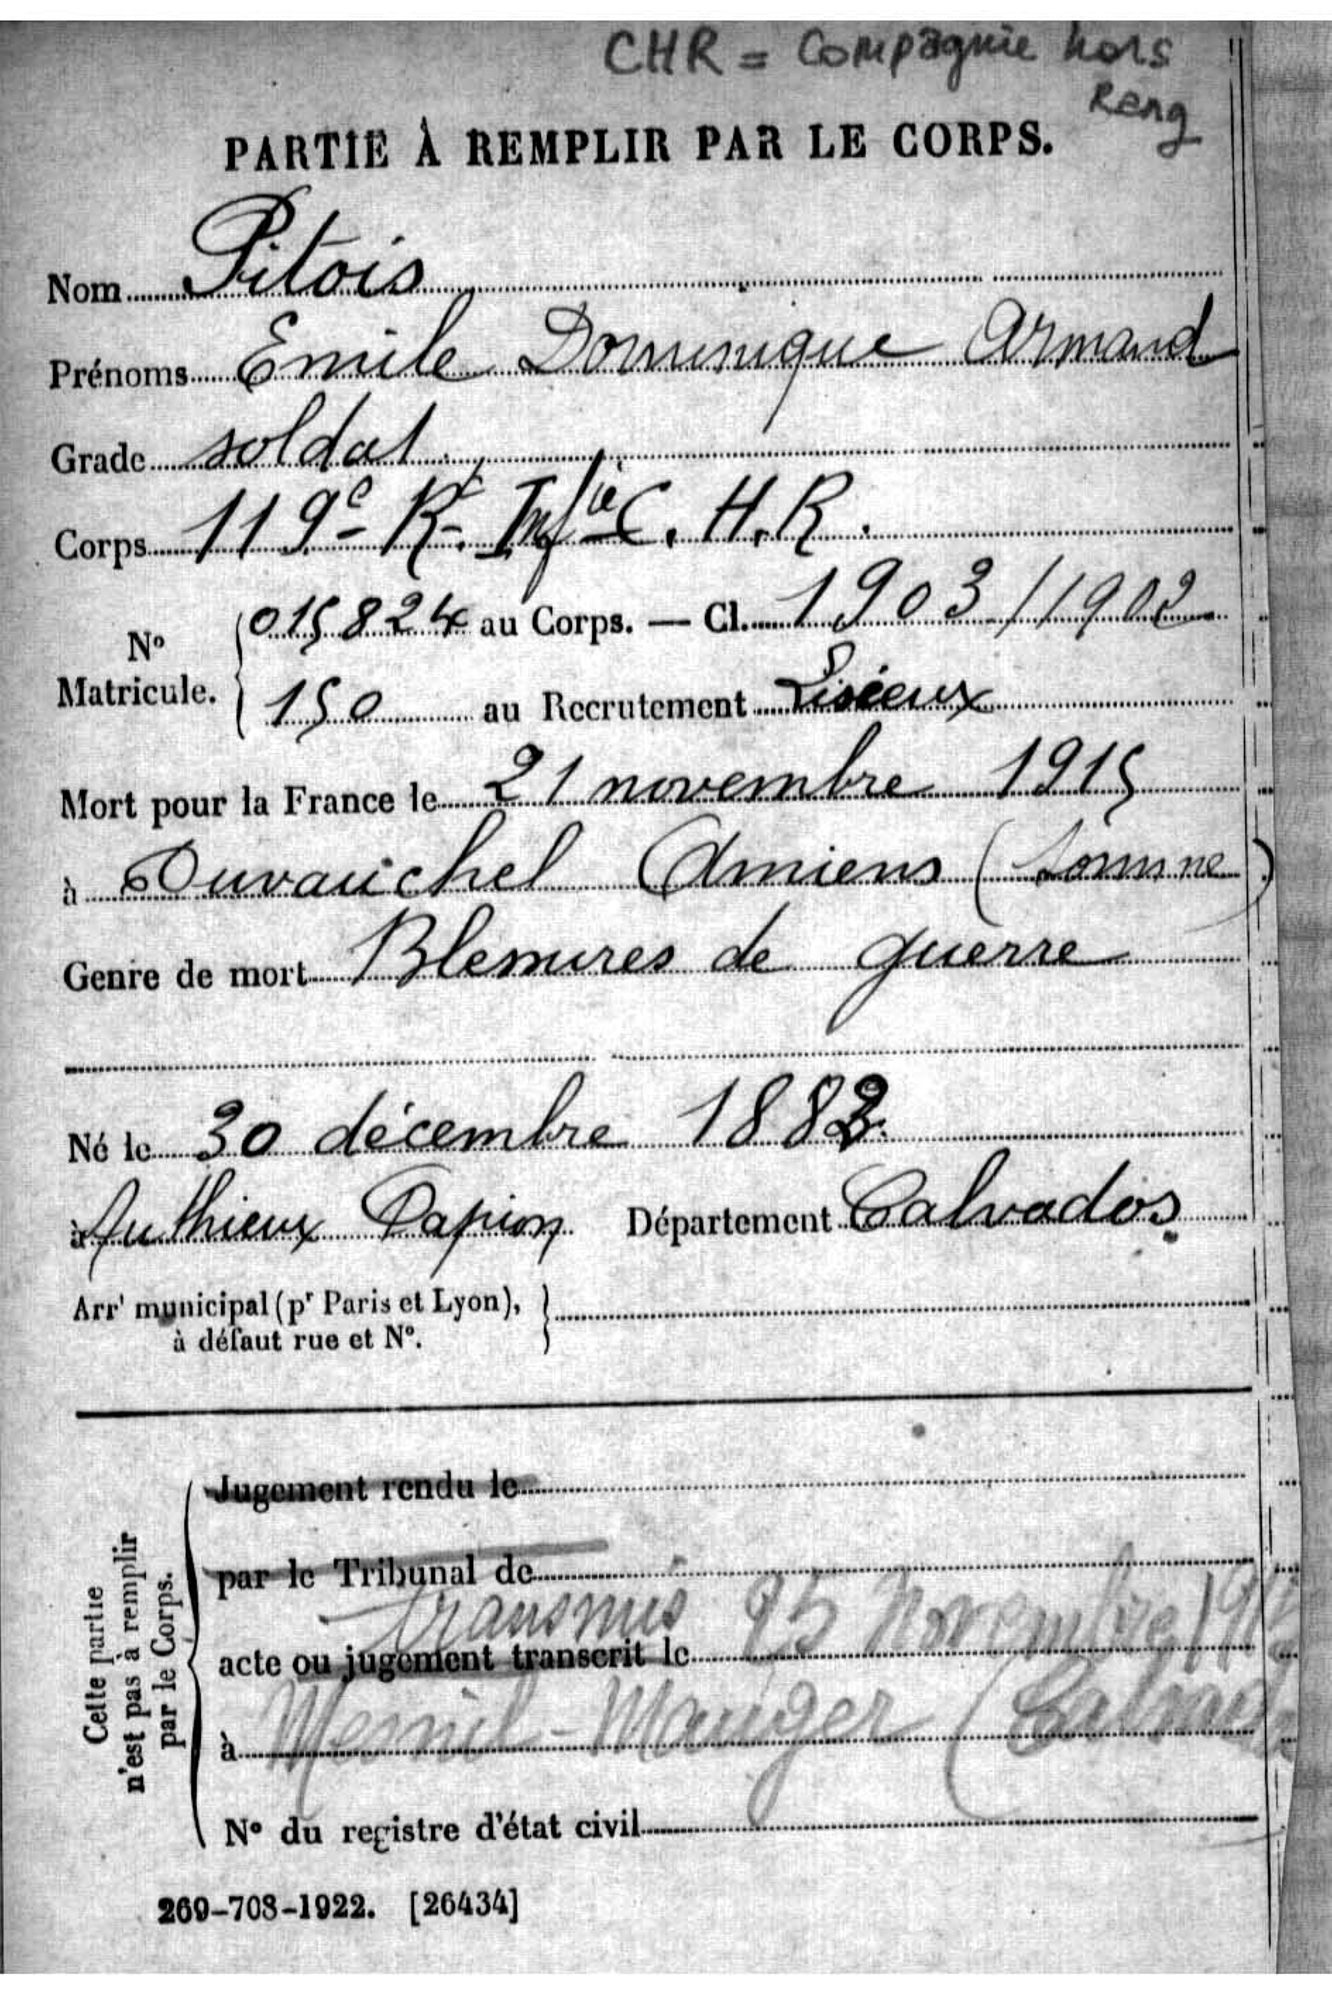 CHR = Compagnie hors
Rang
PARTIE À REMPLIR PAR LE CORPS.
Nom Pitois
Prénoms Emile Dominique Armand
Grade soldat
Corps 119e Rt. Infie C. H. R.
No Matricule. 015824 au Corps. — Cl. 1903 / 1902
150 au Recrutement Lisieux
Mort pour la France le 21 novembre 1915
à Duvauchel Amiens (Somme)
Genre de mort Blessures de guerre
Né le 30 décembre 1882
à Authieux Papion Département Calvados
Arrt municipal (pr Paris et Lyon),
à défaut rue et No.
Cette partie
n'est pas à remplir
par le Corps.
Jugement rendu le
par le Tribunal de
transmis 25 Novembre
acte ou jugement transcrit le
à Mesnil-Mauger (Calvad
No du registre d'état civil
269-708-1922. [26434]